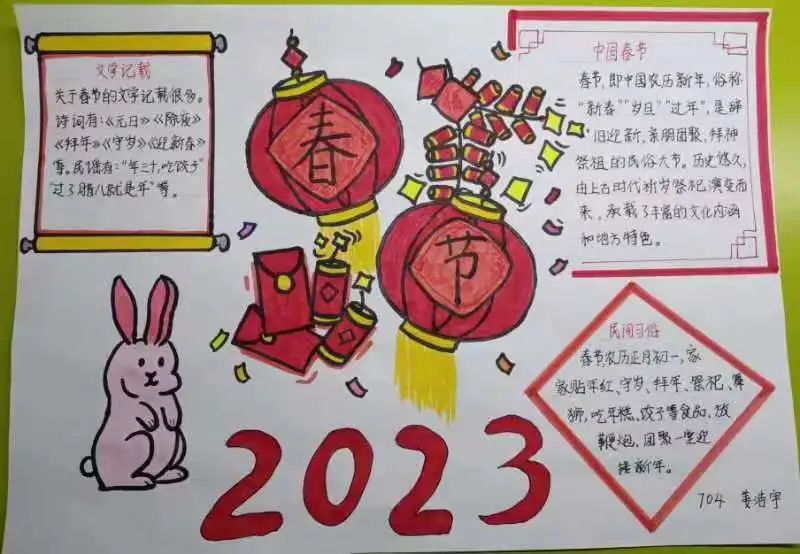 文字记载
关于春节的文字记载很多。
诗词有:《元日》《除夜》
《拜年》《守岁》《迎新春》
等。民谣有:"年三十,吃饺子"
"过了腊八就是年"等。
春
福
节
中国春节
春节,即中国农历新年,俗称
"新春""岁旦""过年",是辞
旧迎新、亲朋团聚、拜神
祭祖的民俗大节。历史悠久,
由上古时代祈岁祭祀演变而
来,承载了丰富的文化内涵
和地方特色。
民间习俗
春节,农历正月初一,家
家贴年红、守岁、拜年、祭祀、舞
狮,吃年糕、饺子等食品,放
鞭炮、团聚一堂迎
接新年。
2023
704 姜浩宇